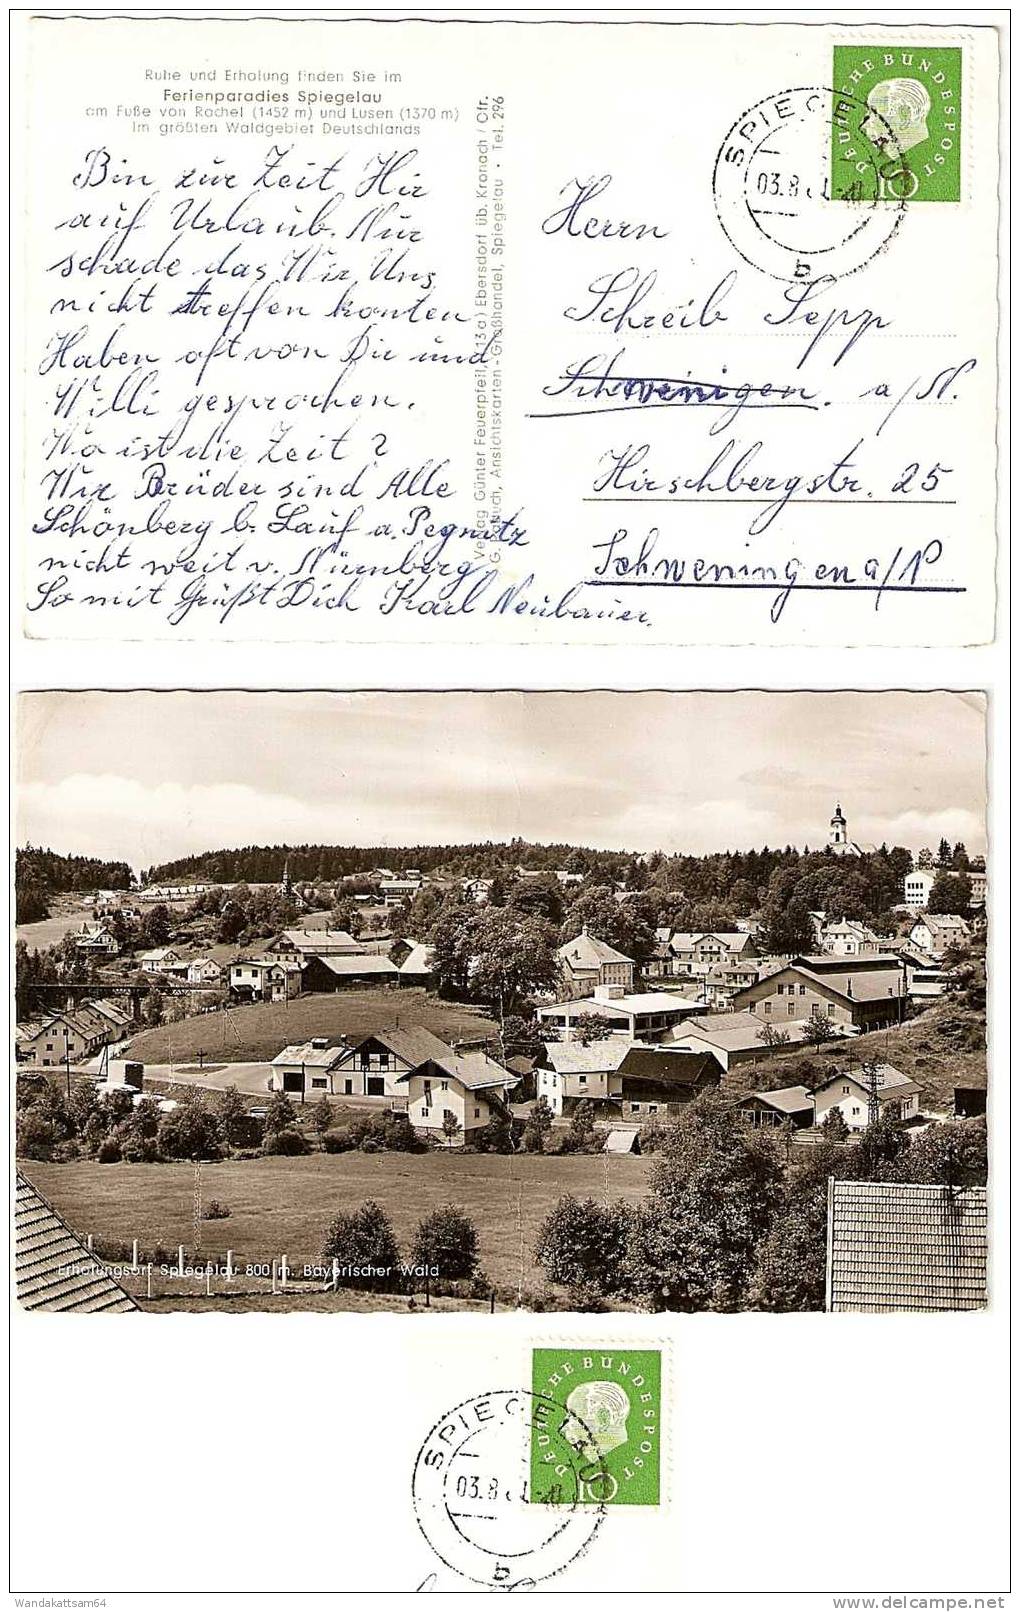 Ruhe und Erholung finden Sie im
Ferienparadies Spiegelau
am Fuße von Rachel (1452 m) und Lusen (1370 m)
im größten Waldgebiet Deutschlands
Bin zur Zeit Hir
auf Urlaub. Nur
schade das Wir Uns
nicht treffen konten
Haben oft von Dir und
Willi gesprochen.
Wo ist die Zeit?
Wir Brüder sind Alle
Schönberg b. Lauf a. Pegnitz
nicht weit v. Nürnberg
Somit Grüßt Dich Karl Neubauer.
Verlag Günter Feuerpfeil, (13a) Ebersdorf üb. Kronach / Ofr.
G. Ansichtskarten - Großhandel, Spiegelau · Tel. 296
DEUTSCHE BUNDESPOST
10
SPIEGELAU
03.8
b
Herrn
Schreib Sepp
Schwenigen. a/N.
Hirschbergstr. 25
Schweningen a/N
Erholungsort Spiegelau 800 m. Bayerischer Wald
DEUTSCHE BUNDESPOST
10
SPIEGELAU
03.8
b
Wandakattsam64
www.delcampe.net